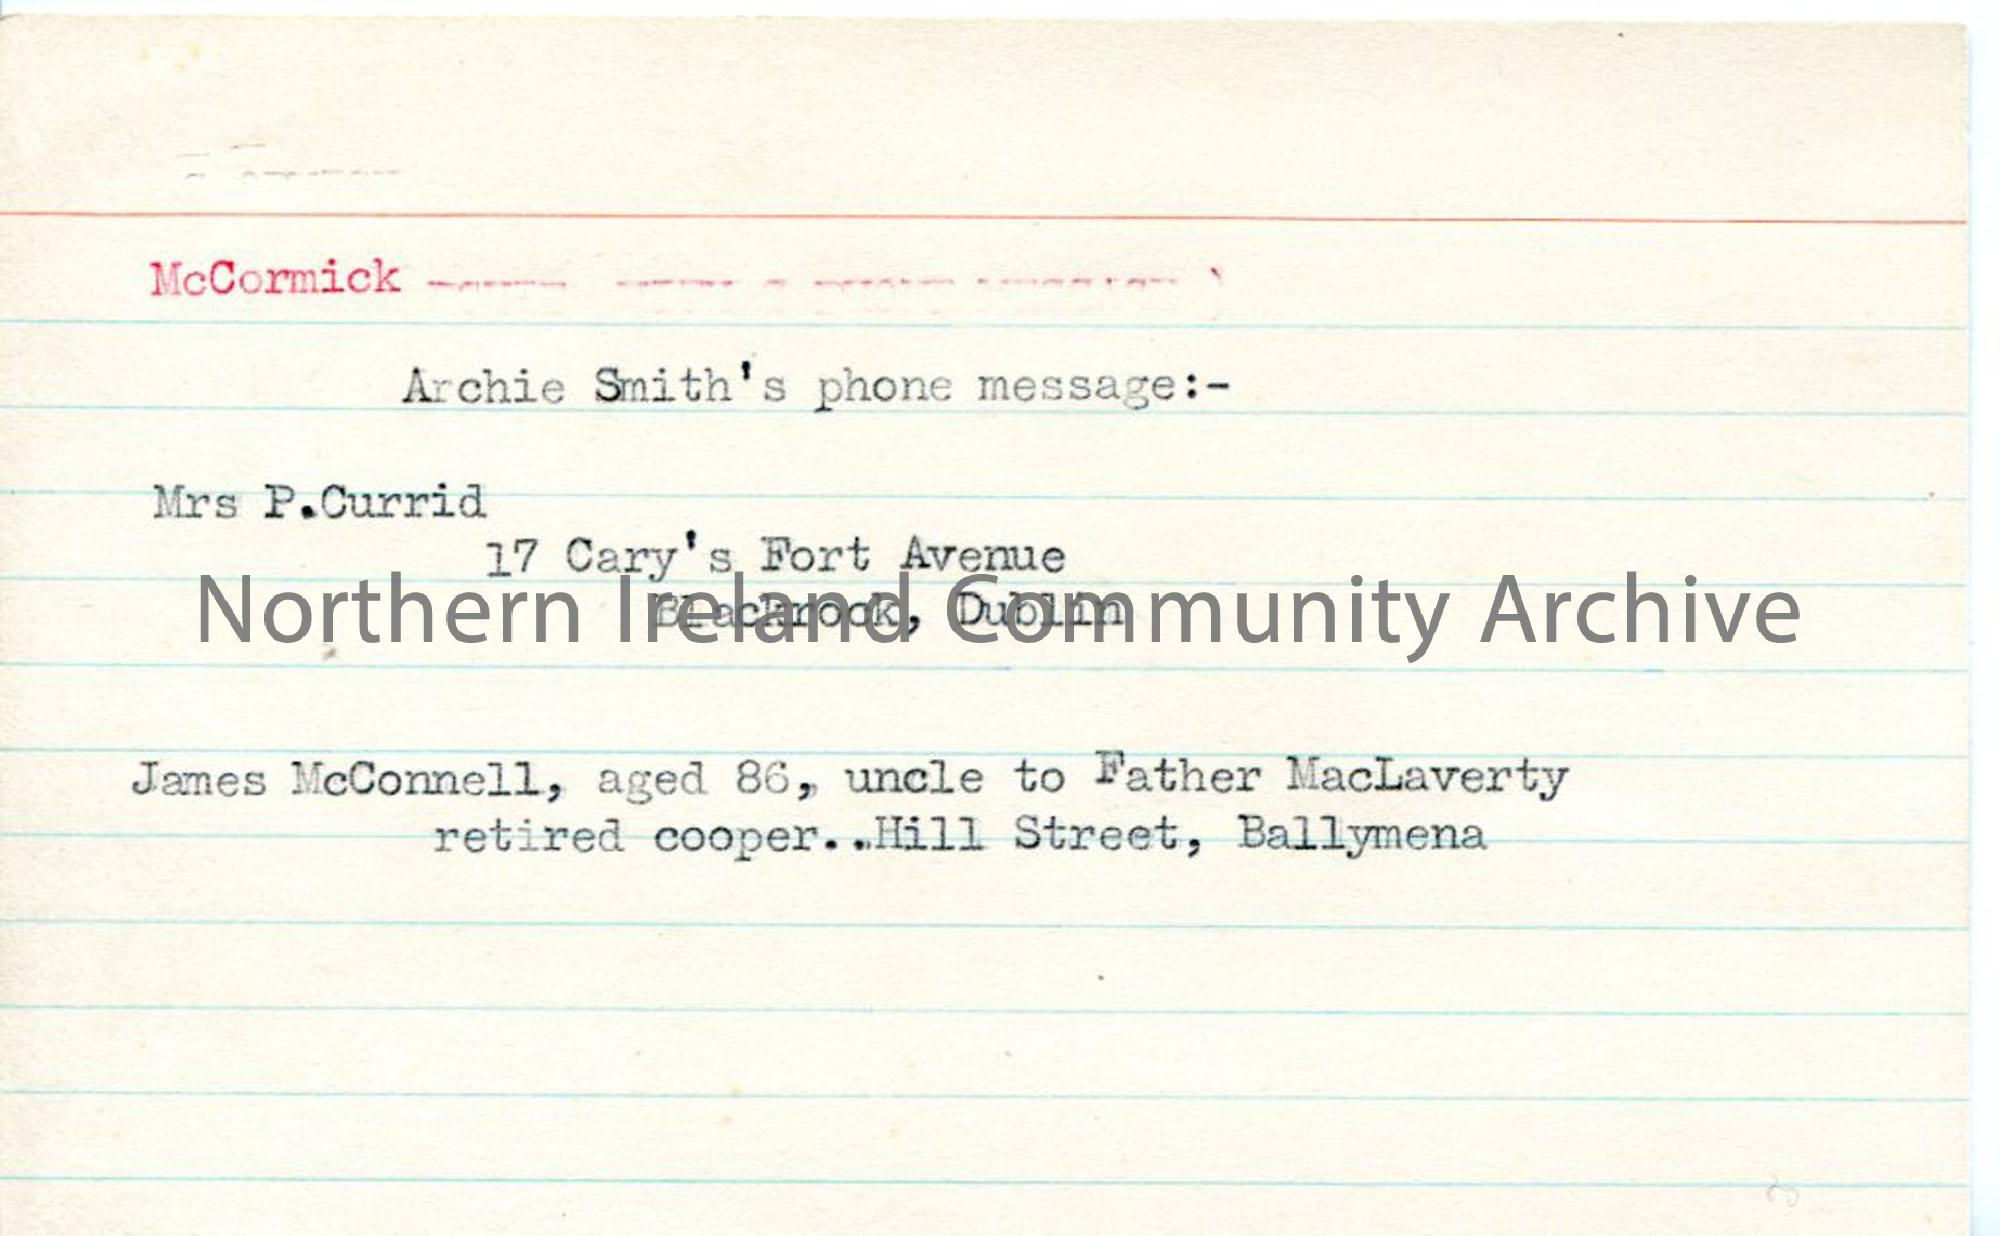 McCormick
Archie Smith's phone message:-
Mrs P.Currid
17 Cary's Fort Avenue
Blackrock, Dublin
Northern Ireland Community Archive
James McConnell, aged 86, uncle to Father MacLaverty
retired cooper...Hill Street, Ballymena